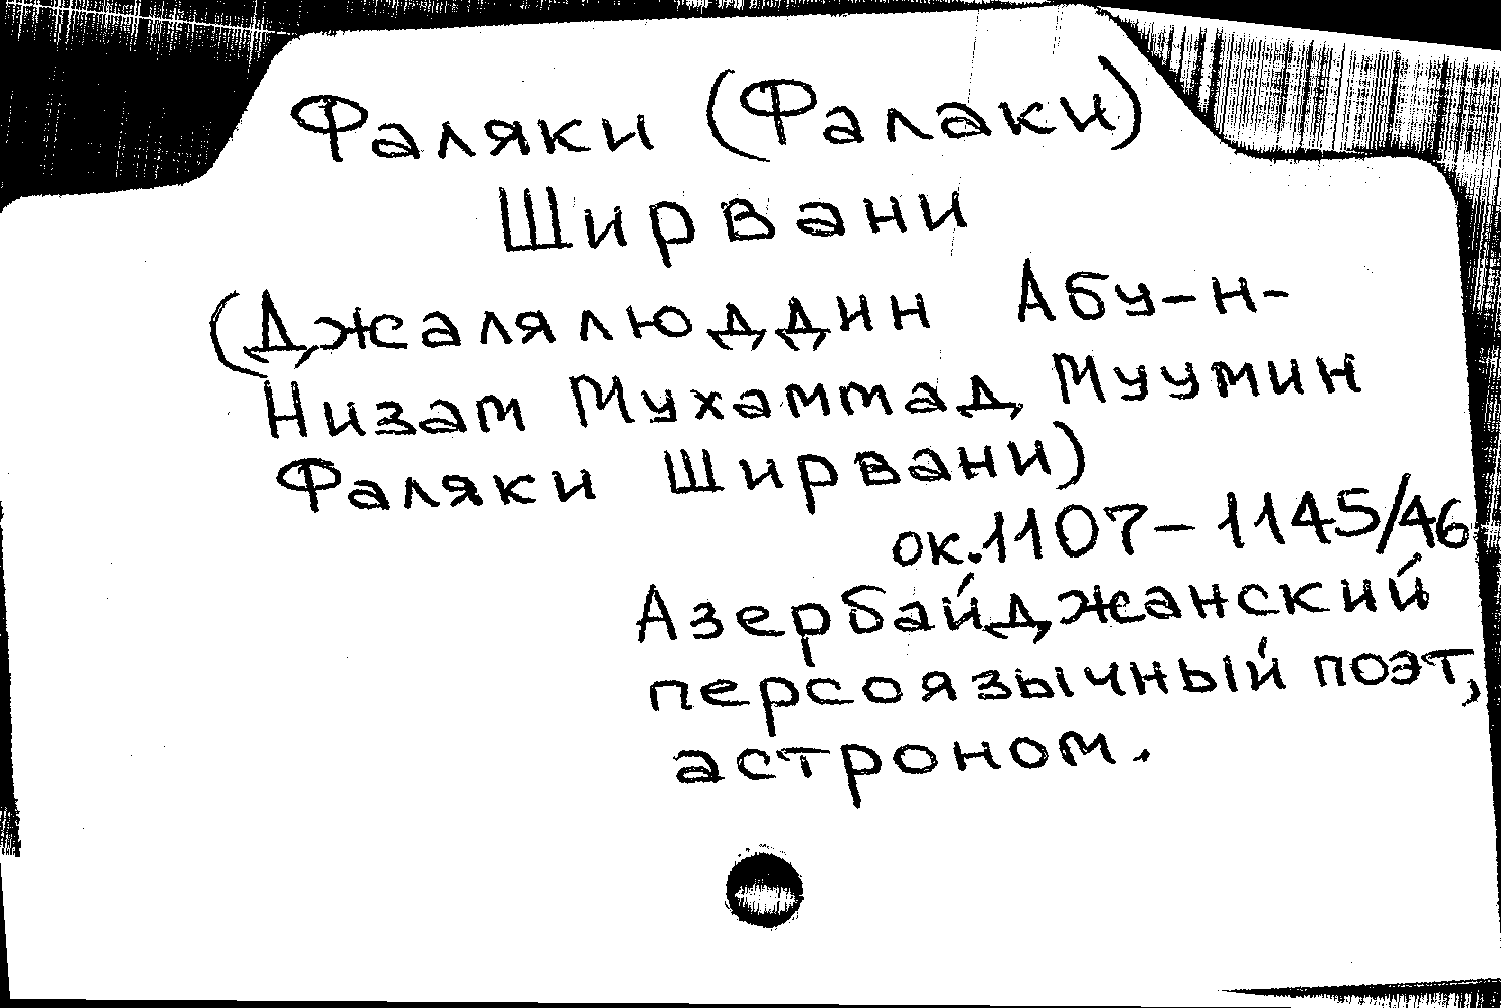 Фаляки (Фалаки)
Ширвани
(Джалялюддин Абу-н-
Низам Мухаммад Муумин
Фаляки Ширвани)
ок.1107-1145/46
Азербайджанский
персоязычный поэт,
астроном.